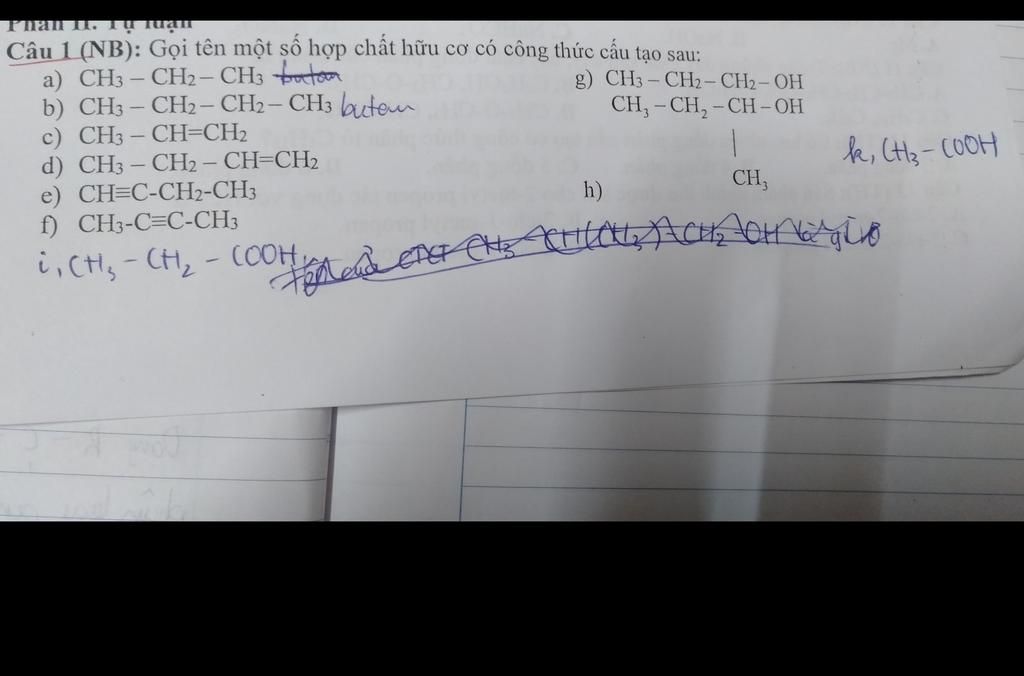 Phần II. Tự luận
Câu 1 (NB): Gọi tên một số hợp chất hữu cơ có công thức cấu tạo sau:
a) CH3 – CH2 – CH3 butan
b) CH3 – CH2 – CH2 – CH3 butan
c) CH3 – CH=CH2
d) CH3 – CH2 – CH=CH2
e) CH≡C-CH2-CH3
f) CH3-C≡C-CH3
i, CH3 – CH2 – COOH
g) CH3 – CH2 – CH2 – OH
CH3 – CH2 – CH – OH
|
CH3
h)
k, CH3 – COOH
Tên của CTCT CH3 – CH(CH3) – CH2 – OH là gì